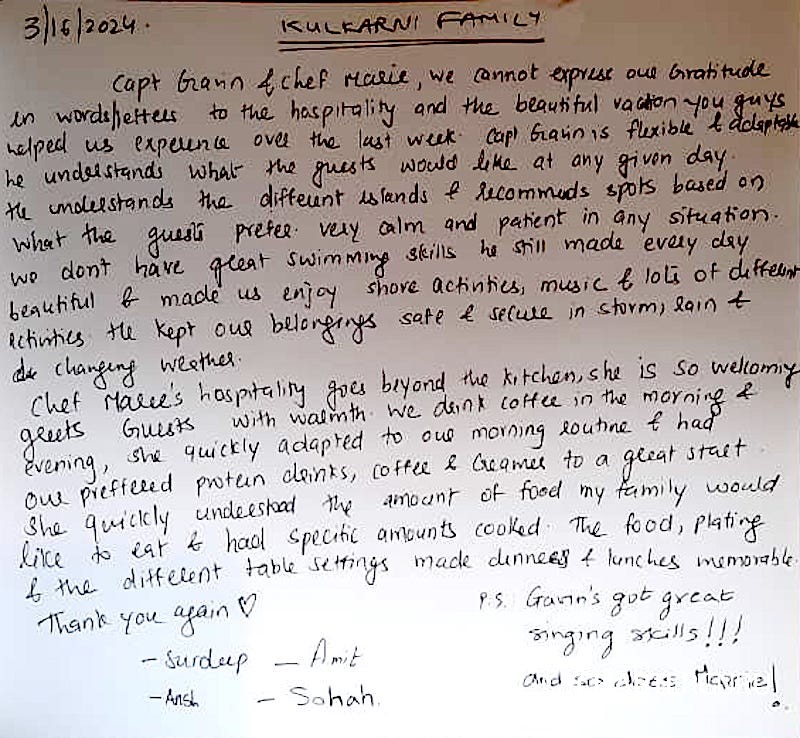 3/16/2024.
KULKARNI FAMILY
Capt Gavin & chef Marie, we cannot express our Gratitude
in words/letters to the hospitality and the beautiful vaction you guys
helped us experence over the last week. Capt Gavin is flexible & adaptable
he understands what the guests would like at any given day.
He understands the different islands & recommends spots based on
what the guests prefer. very calm and patient in any situation.
we don't have great swimming skills he still made every day
beautiful & made us enjoy shore activities, music & lots of different
activities. He kept our belongings safe & secure in storm, rain &
changing weather.
Chef Marie's hospitality goes beyond the kitchen, she is so welcoming
greets Guests with warmth. We drink coffee in the morning &
evening, she quickly adapted to our morning routine & had
our preffered protein drinks, coffee & creamer to a great start.
She quickly understood the amount of food my family would
like to eat & had specific amounts cooked. The food, plating
& the different table settings made dinners & lunches memorable.
Thank you again ♡
- Surdeep - Amit
- Ansh - Sohah.
P.S. Gavin's got great
singing skills!!!
and